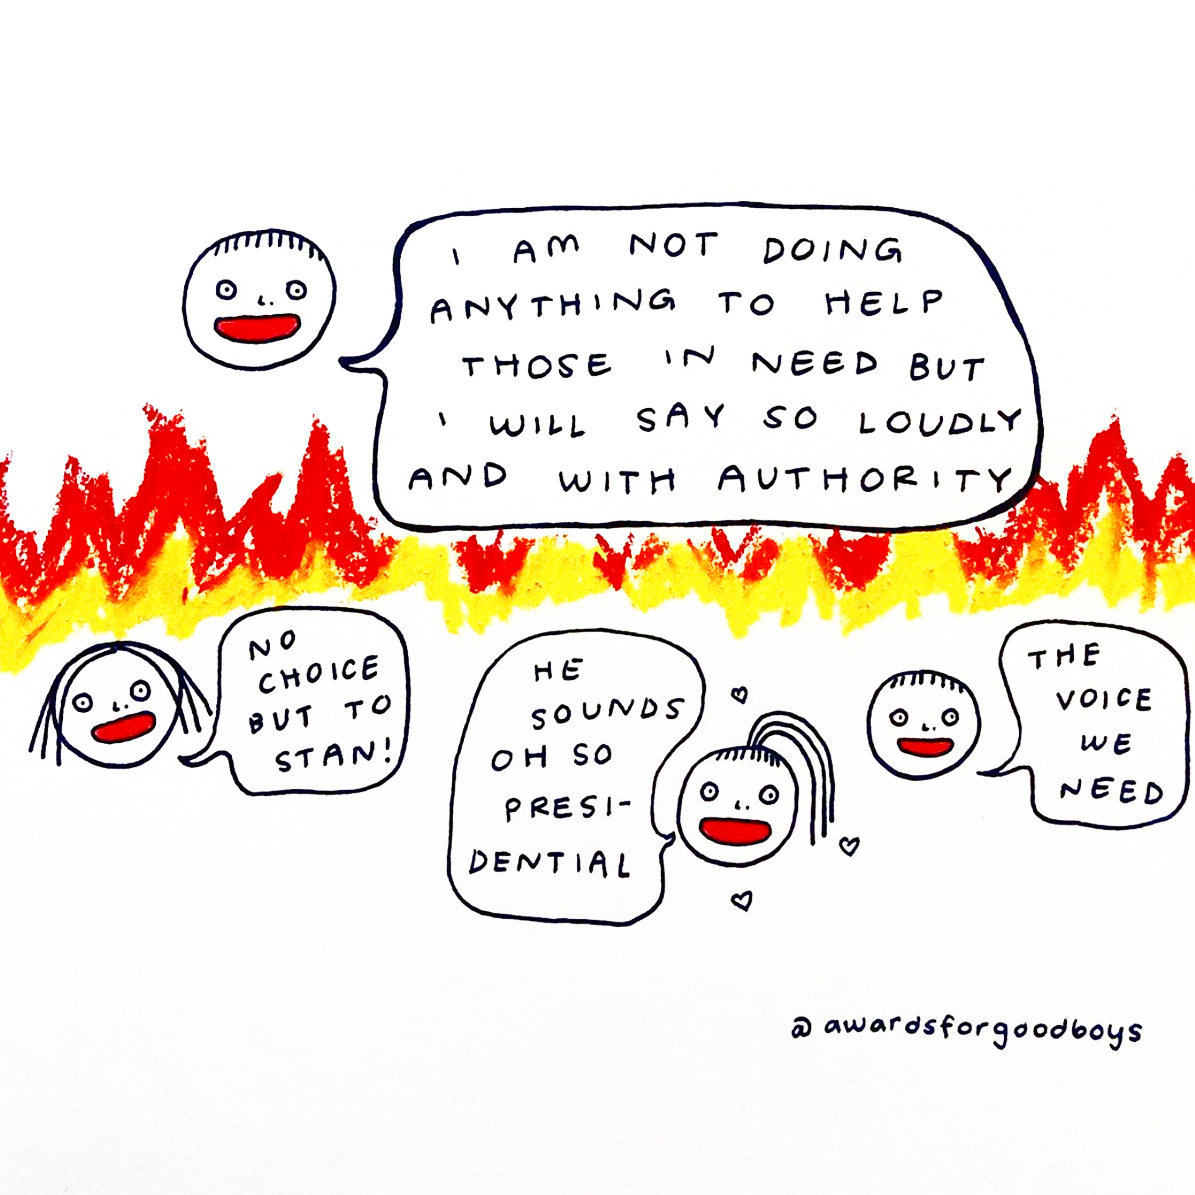 I AM NOT DOING
ANYTHING TO HELP
THOSE IN NEED BUT
I WILL SAY SO LOUDLY
AND WITH AUTHORITY
NO
CHOICE
BUT TO
STAN!
HE
SOUNDS
OH SO
PRESI-
DENTIAL
THE
VOICE
WE
NEED
@awardsforgoodboys